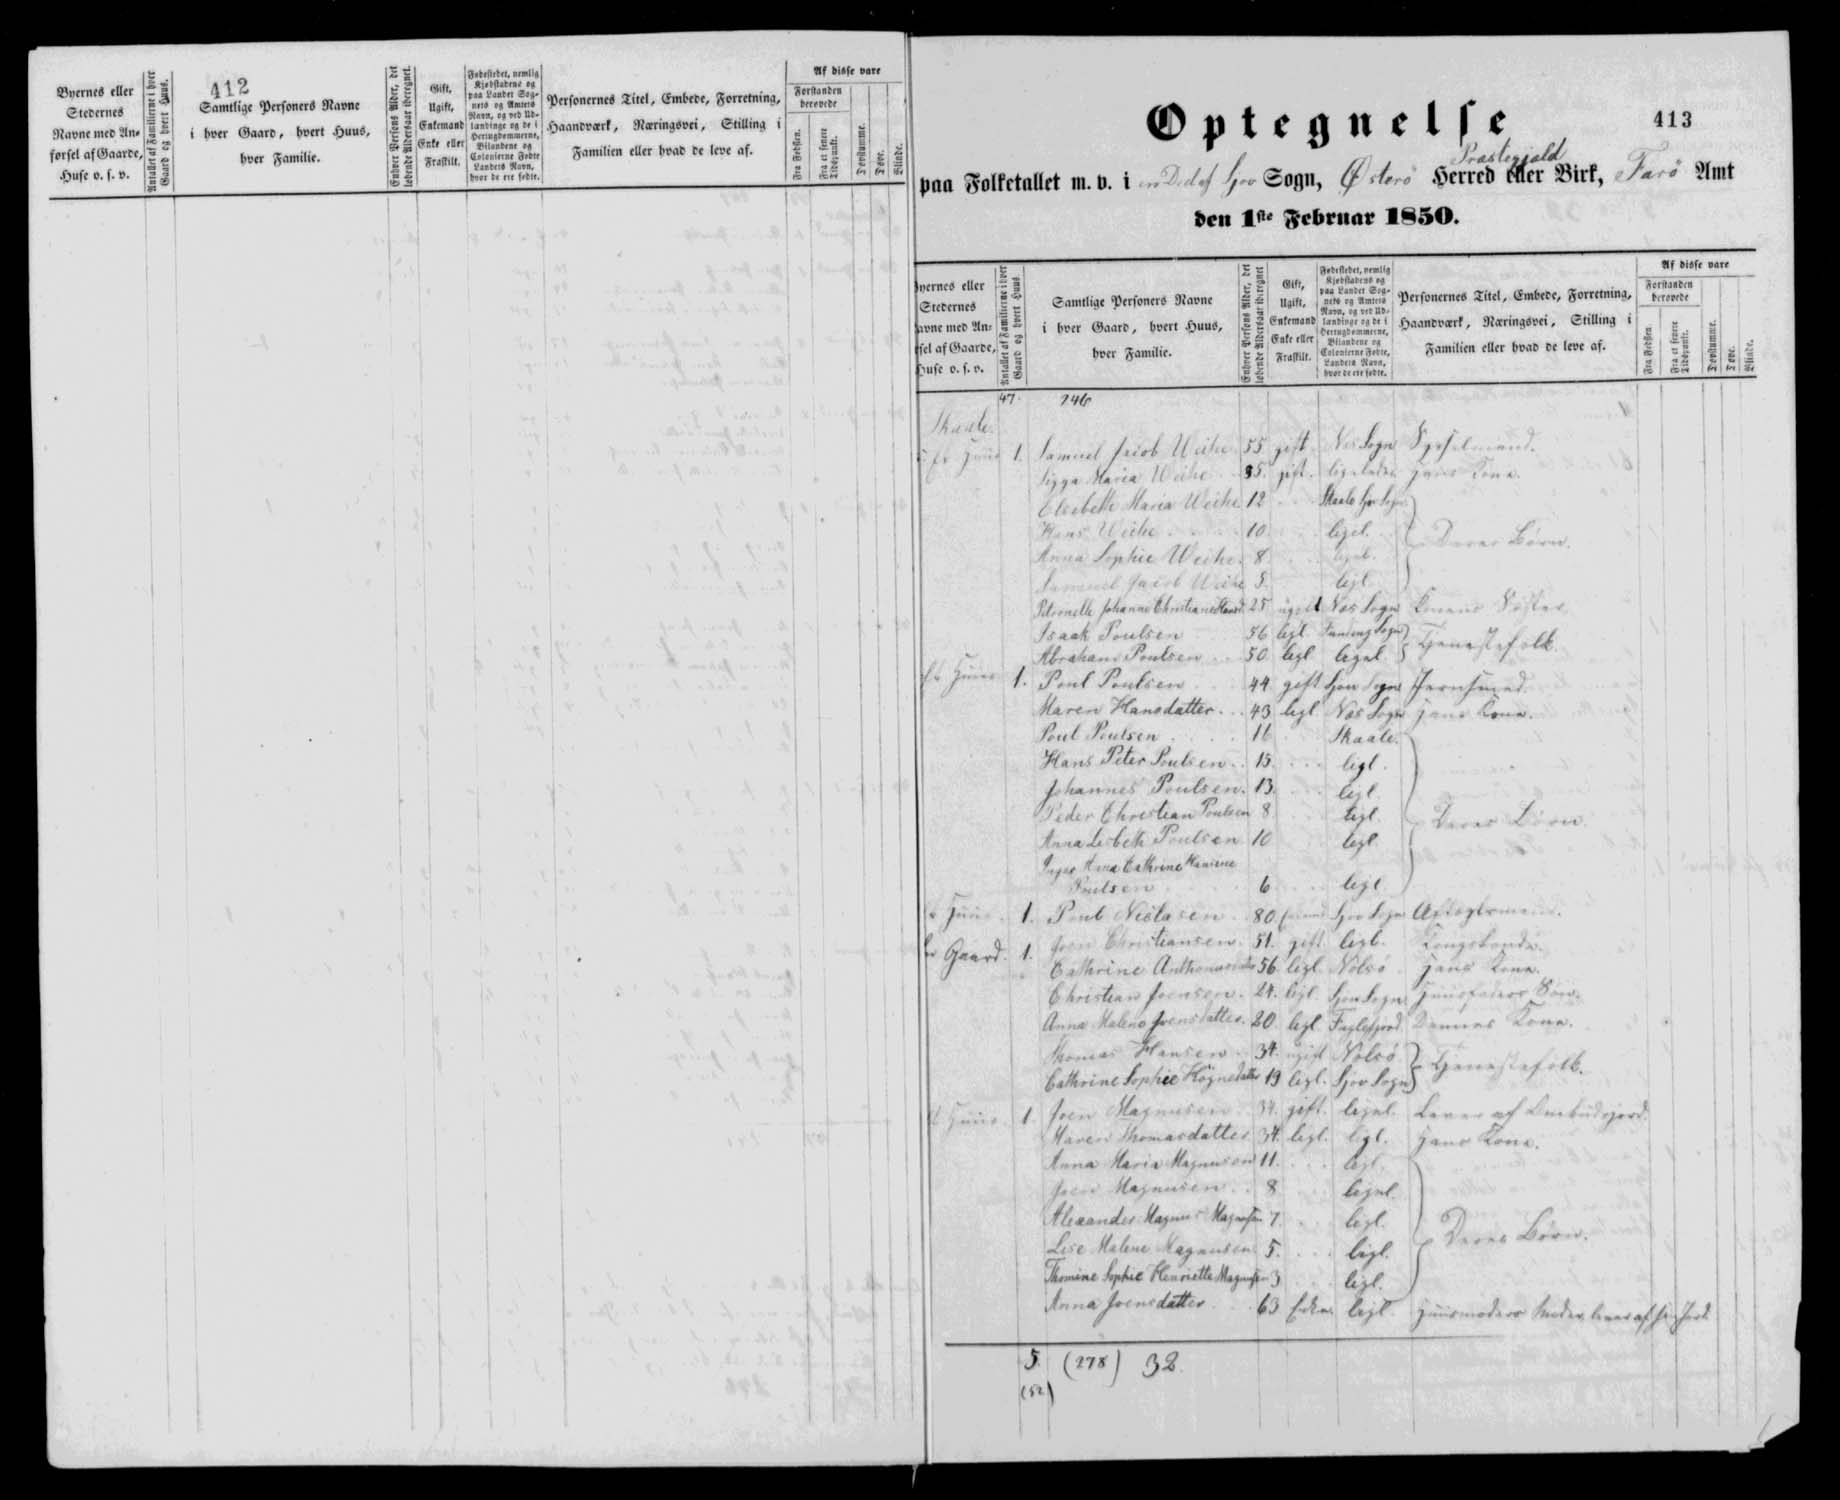 412
Byernes eller
Stedernes
Navne med An-
førsel af Gaarde,
Huse o. s. v.
Antallet af Familierne i hver
Gaard og hvert Huus.
Samtlige Personers Navne
i hver Gaard, hvert Huus,
hver Familie.
Enhver Persons Alder, det
løbende Aldersaar iberegnet.
Gift,
Ugift,
Enkemand
Enke eller
Fraskilt.
Fødestedet, nemlig
Kjøbstadens og
paa Landet Sog-
nets og Amtets
Navn, og ved Ud-
lændinge og de i
Hertugdømmerne,
Bilandene og
Colonierne Fødte,
Landets Navn,
hvor de ere fødte.
Personernes Titel, Embede, Forretning,
Haandværk, Næringsvei, Stilling i
Familien eller hvad de leve af.
Af disse vare
Forstanden
berøvede
Fra Fødslen.
Fra et senere
Tidspunkt.
Døvstumme.
Døve.
Blinde.
413
Optegnelse
Præstegjæld
paa Folketallet m. v. i en Del af Sjov Sogn, Østerø Herred eller Birk, Farø Amt
den 1ste Februar 1850.
Byernes eller
Stedernes
Navne med An-
førsel af Gaarde,
Huse o. s. v.
Antallet af Familierne i hver
Gaard og hvert Huus.
Samtlige Personers Navne
i hver Gaard, hvert Huus,
hver Familie.
Enhver Persons Alder, det
løbende Aldersaar iberegnet
Gift,
Ugift,
Enkemand
Enke eller
Fraskilt.
Fødestedet, nemlig
Kjøbstadens og
paa Landet Sog-
nets og Amtets
Navn, og ved Ud-
lændinge og de i
Hertugdømmerne,
Bilandene og
Colonierne Fødte,
Landets Navn,
hvor de ere fødte.
Personernes Titel, Embede, Forretning,
Haandværk, Næringsvei, Stilling i
Familien eller hvad de leve af.
Af disse vare
Forstanden
berøvede
Fra Fødslen.
Fra et senere
Tidspunkt.
Døvstumme.
Døve.
Blinde.
47. 246
Skaale.
Et Huus 1. Samuel Jacob Weihe 55 gift Næs Sogn Sysselmand.
Sigga Maria Weihe 35. gift. ligeledes Hans Kone.
Elsebeth Maria Weihe 12 Skaale Sjov Sogn
Hans Weihe 10 ligel. Deres Børn.
Anna Sophie Weihe. 8. ligel.
Samuel Jacob Weihe 5. ligl.
Petronelle Johanne Christiane 25 ugift Næs Sogn Konens Søster
Isaak Poulsen 56 ligl. Funding Sogn Tjenestefolk.
Abraham Poulsen 50 ligl ligel.
Et Huus 1. Poul Poulsen 44 gift Sjov Sogn Jernsmed.
Maren Hansdatter. 43 ligl. Næs Sogn Hans Kone.
Poul Poulsen 16 Skaale.
Hans Peter Poulsen 15. ligl.
Johannes Poulsen. 13. ligl.
Peder Christian Poulsen 8 ligl. Deres Børn.
Anna Lisbeth Poulsen 10 ligl.
Anna Cathrine
Poulsen 6 ligl.
Et Huus. 1. Poul 80. Sjov Sogn Aftægtsmand.
En Gaard. 1. Joen Christiansen. 51. gift ligl. Kongsbonde.
Cathrine 56 ligl. Nolsø Hans Kone.
Christian Joensen. 24. ligl. Sjov Sogn Huusfaders Søn.
Anna Malene Joensdatter. 20 ligl. Fuglefjord Dennes Kone.
Thomas Hansen 34. ugift Nolsø Tjenestefolk.
Cathrine Sophie Høgnedatter 19 ligl. Sjov Sogn
Et Huus. 1. Joen Magnusen 34. gift. ligel. Lever af
Maren Thomasdatter 34. ligl. ligl. Hans Kone.
Anna Maria Magnusen 11. ligl.
Joen Magnusen 8 ligel.
Alexander Magnus Magnusen 7. ligl.
Lise Malene Magnusen 5. ligl. Deres Børn.
Thomine Sophie Henriette Magnusen 3 ligl.
Anna Joensdatter 63 Enke. ligl. Huusmoders Moder, lever af sin Jord.
5. (278) 32.
(52)